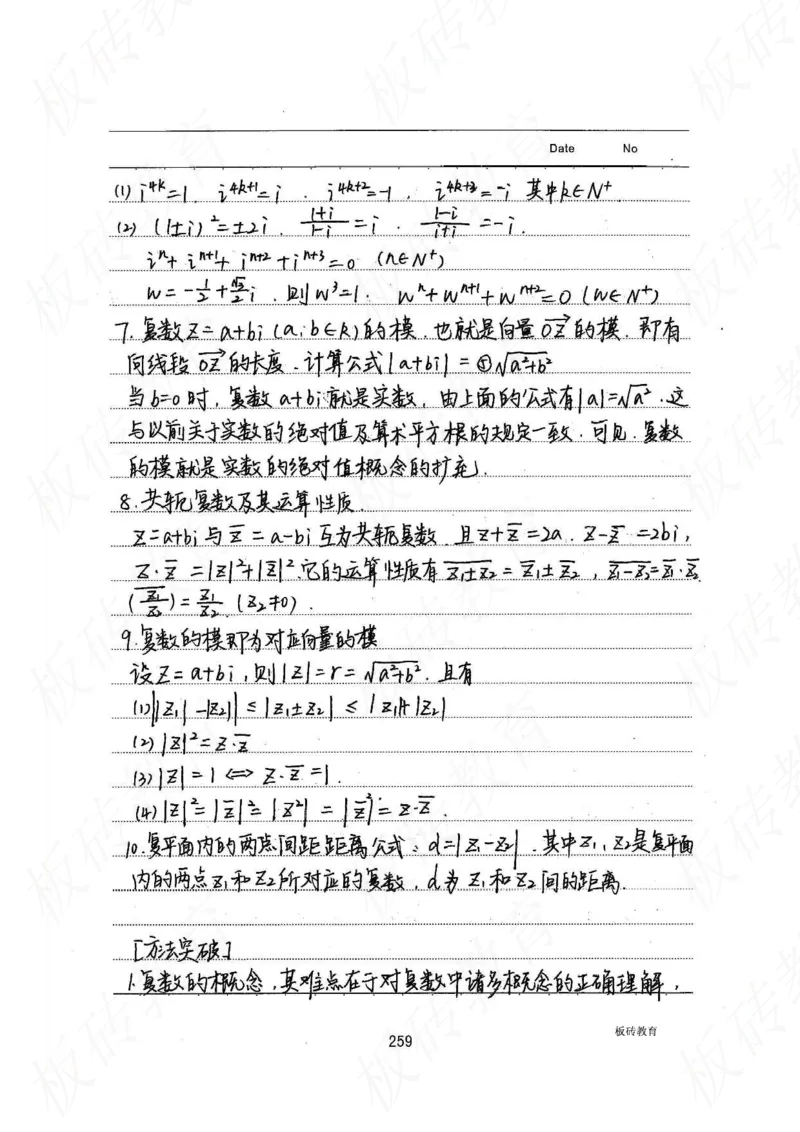 Date No
(1) i^{4k}=1. i^{4k+1}=i . i^{4k+2}=-1 . i^{4k+3}=-i 其中k∈N^+
(2) (1±i)^2=±2i . \frac{1+i}{1-i}=i . \frac{1-i}{i+i}=-i .
i^n+i^{n+1}+i^{n+2}+i^{n+3}=0 (n∈N^+)
w=-\frac{1}{2}+\frac{\sqrt{3}}{2}i . 则w^3=1. w^n+w^{n+1}+w^{n+2}=0 (W∈N^+)
7. 复数Z=a+bi (a,b∈R)的模. 也就是向量\overrightarrow{OZ}的模. 即有
向线段\overrightarrow{OZ}的长度. 计算公式|a+bi|=⑤\sqrt{a^2+b^2}
当b=0时, 复数a+bi就是实数, 由上面的公式有|a|=\sqrt{a^2}.这
与以前关于实数的绝对值及算术平方根的规定一致. 可见. 复数
的模就是实数的绝对值概念的扩充.
8. 共轭复数及其运算性质.
Z=a+bi与\overline{z}=a-bi互为共轭复数. 且z+\overline{z}=2a. Z-\overline{z}=2bi,
Z·\overline{z}=|z|^2+|\overline{z}|^2.它的运算性质有\overline{z_1±z_2}=\overline{z_1}±\overline{z_2}, \overline{z_1-z_2}=\overline{z_1}·\overline{z_2}
(\overline{\frac{z_1}{z_2}})=\frac{\overline{z_1}}{\overline{z_2}} (z_2≠0).
9. 复数的模即为对应向量的模
设Z=a+bi, 则|z|=r=\sqrt{a^2+b^2}. 且有
(1)||z_1|-|z_2||≤|z_1±z_2|≤|z_1|+|z_2|
(2)|z|^2=z·\overline{z}
(3)|z|=1⟺z·\overline{z}=1.
(4)|z|^2=|\overline{z}|^2=|z^2|=|\overline{z}^2|=z·\overline{z}.
10. 复平面内的两点间距距离公式: d=|z_1-z_2|. 其中z_1, z_2是复平面
内的两点z_1和z_2所对应的复数, d为z_1和z_2间的距离.
[方法突破]
1. 复数的概念, 其难点在于对复数中诸多概念的正确理解,
259
板砖教育